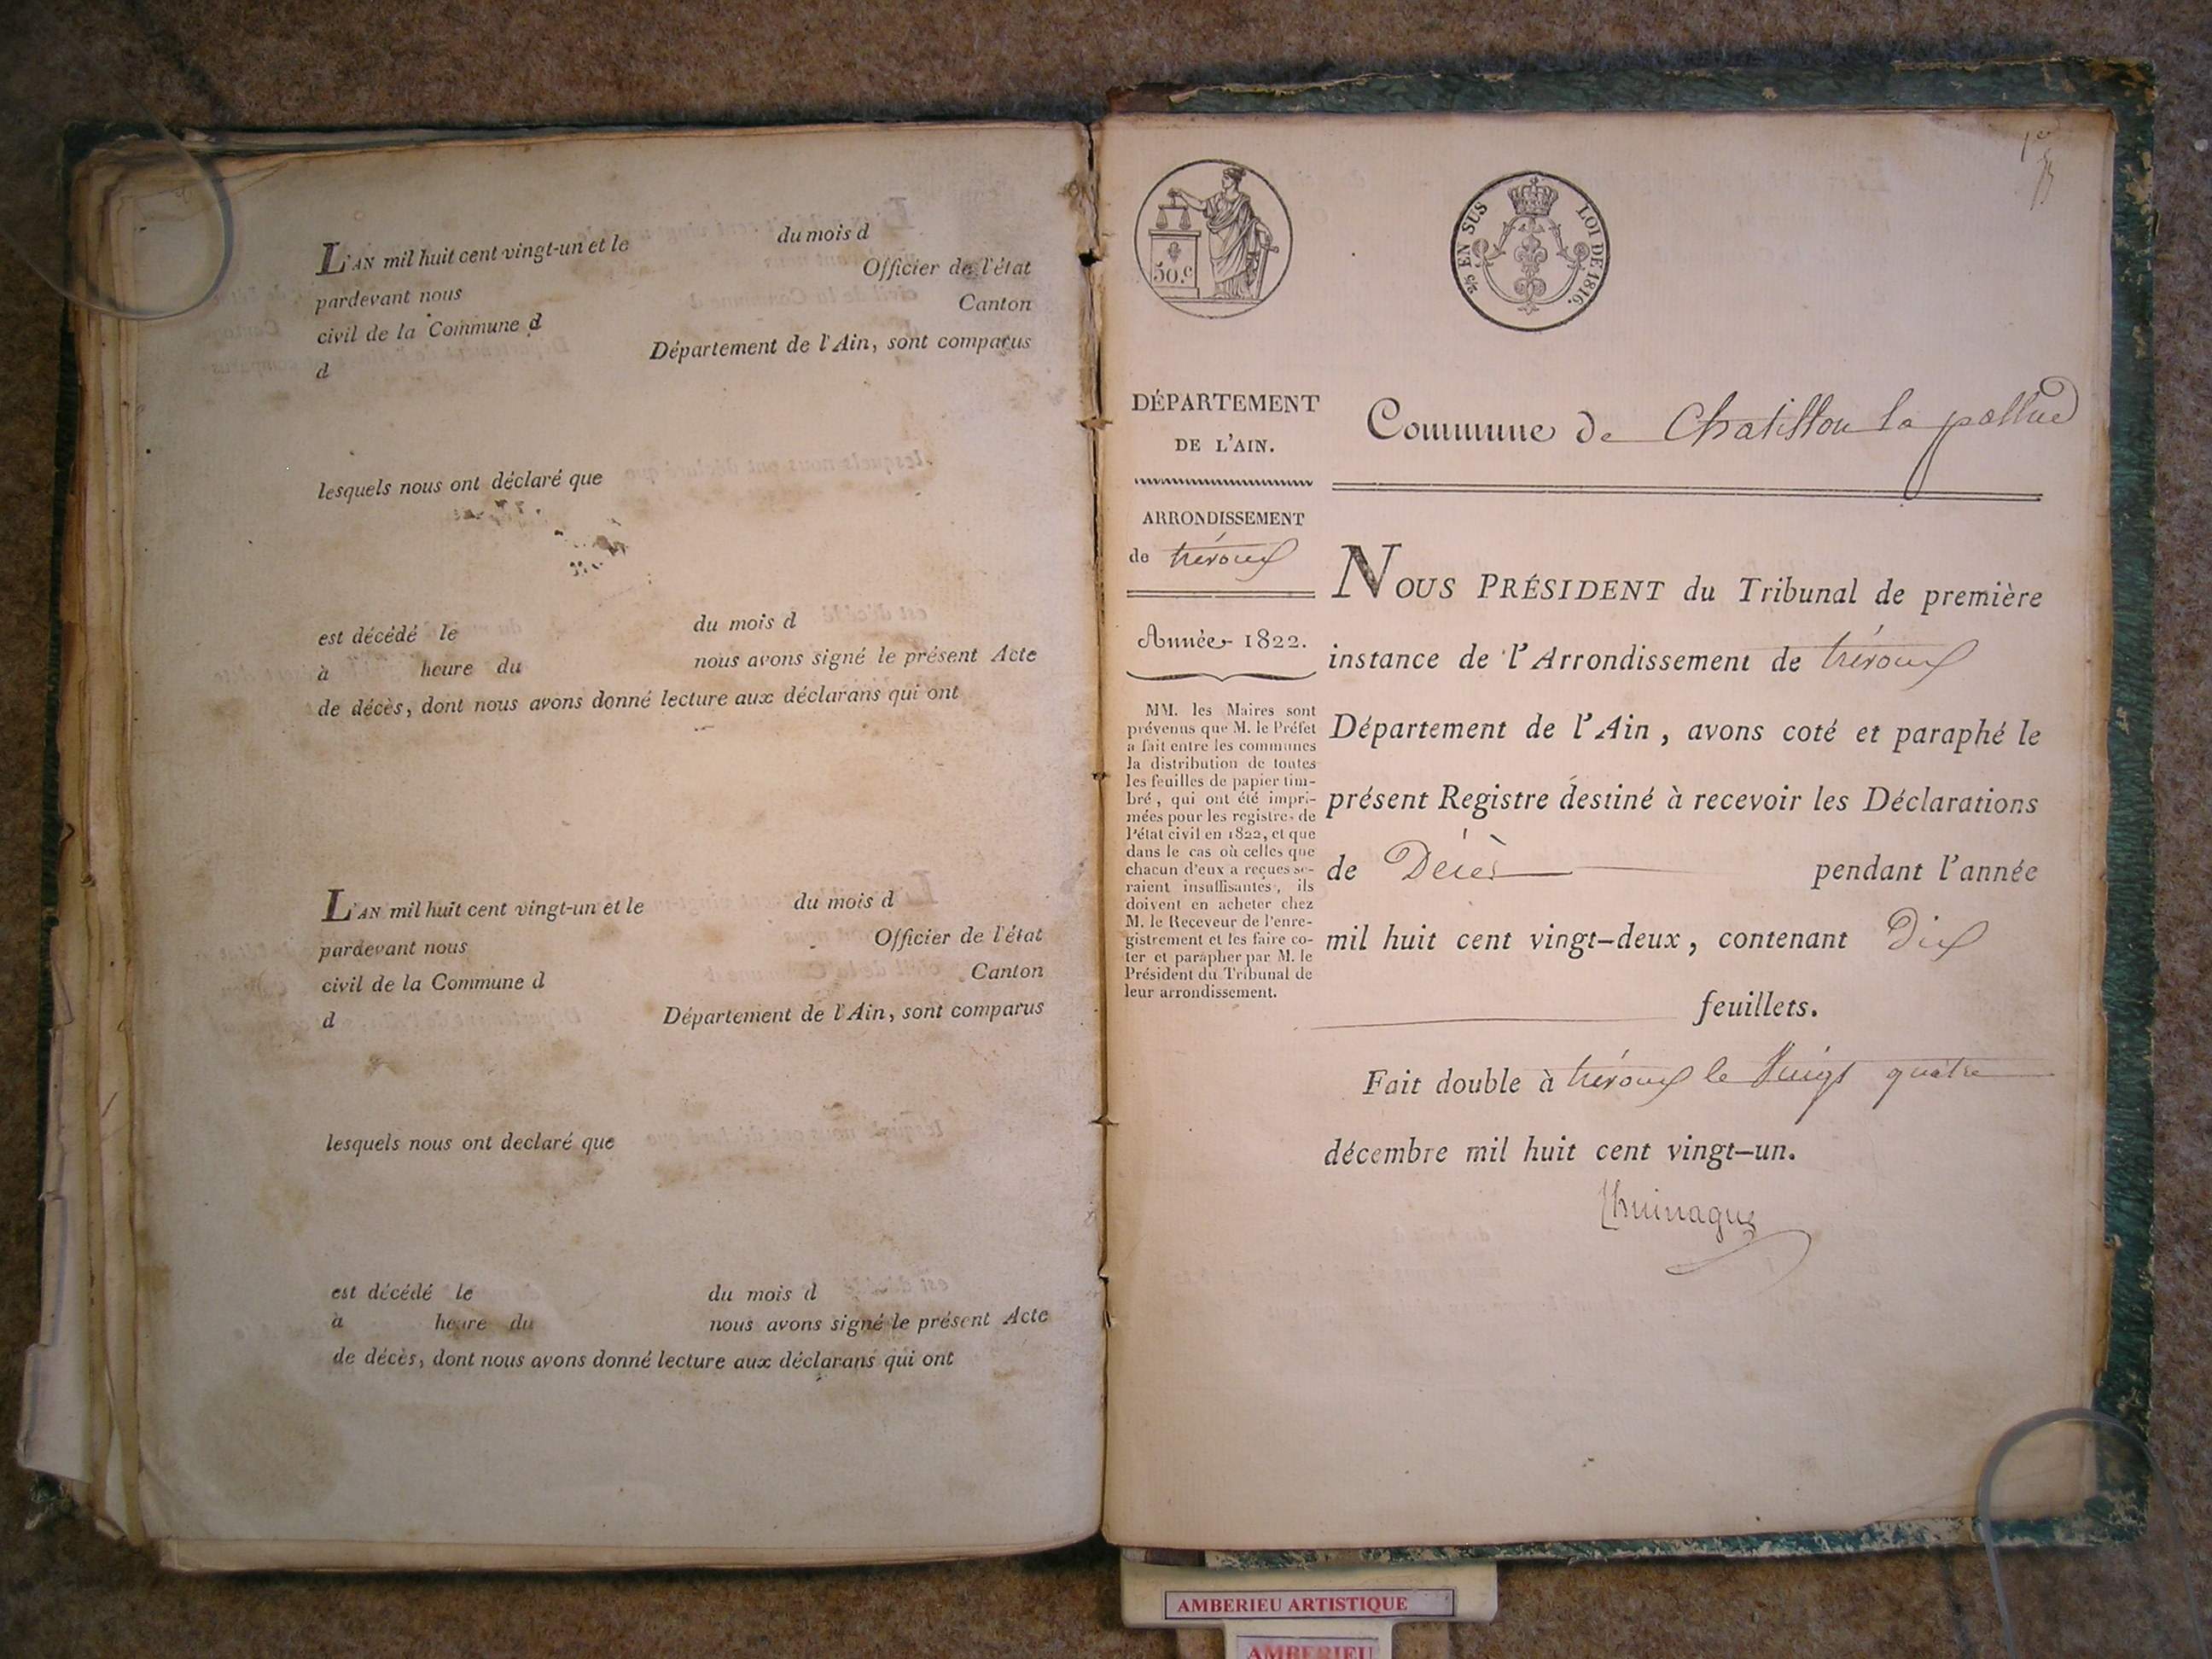 L'AN mil huit cent vingt-un et le du mois d
pardevant nous Officier de l'état
civil de la Commune d Canton
d Département de l'Ain, sont comparus
lesquels nous ont déclaré que
est décédé le du mois d
à heure du nous avons signé le présent Acte
de décès, dont nous avons donné lecture aux déclarans qui ont
L'AN mil huit cent vingt-un et le du mois d
pardevant nous Officier de l'état
civil de la Commune d Canton
d Département de l'Ain, sont comparus
lesquels nous ont declaré que
est décédé le du mois d
à heure du nous avons signé le présent Acte
de décès, dont nous avons donné lecture aux déclarans qui ont
1er
50.c
EN SUS LOI DE 1816.
DÉPARTEMENT
DE L'AIN.
ARRONDISSEMENT
de trévoux
Année 1822.
MM. les Maires sont
prévenus que M. le Préfet
a fait entre les communes
la distribution de toutes
les feuilles de papier tim-
bré, qui ont été impri-
mées pour les registres de
l'état civil en 1822, et que
dans le cas où celles que
chacun d'eux a reçues se-
raient insuffisantes, ils
doivent en acheter chez
M. le Receveur de l'enre-
gistrement et les faire co-
ter et parapher par M. le
Président du Tribunal de
leur arrondissement.
Commune de Chatillon la pallud
NOUS PRÉSIDENT du Tribunal de première
instance de l'Arrondissement de trévoux
Département de l'Ain, avons coté et paraphé le
présent Registre destiné à recevoir les Déclarations
de Décès pendant l'année
mil huit cent vingt-deux, contenant Dix
feuillets.
Fait double à trévoux le Vingt quatre
décembre mil huit cent vingt-un.
AMBERIEU ARTISTIQUE
AMBERIEU